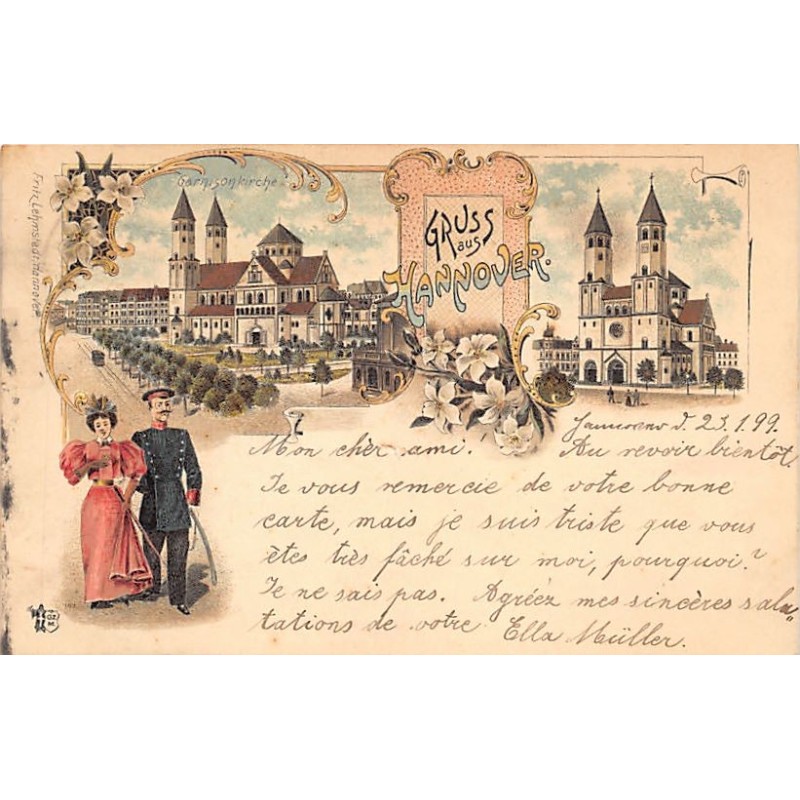 Garnisonkirche.
GRUSS
aus
HANNOVER.
Fritz Lehmstedt, Hannover
d. 25.1.99.
Mon chèr ami. Au revoir bientôt.
Je vous remercie de votre bonne
carte, mais je suis triste que vous
êtes très fâché sur moi, pourquoi?
Je ne sais pas. Agréez mes sincères salu„
tations de votre Ella Müller.